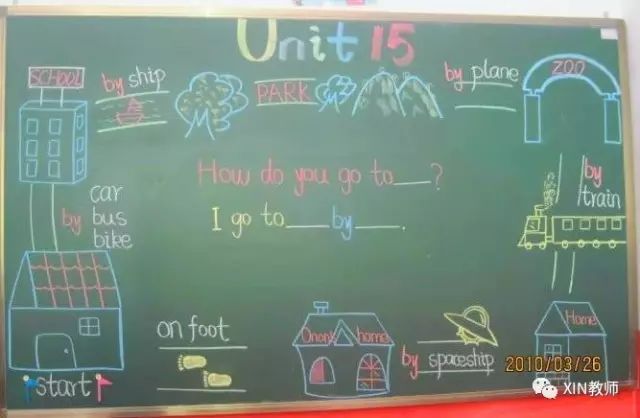 Unit 15
SCHOOL
by ship
PARK
by plane
ZOO
How do you go to___?
I go to___by___.
by
car
bus
bike
by
train
on foot
home
by spaceship
Home
start
2010/03/26
XIN教师